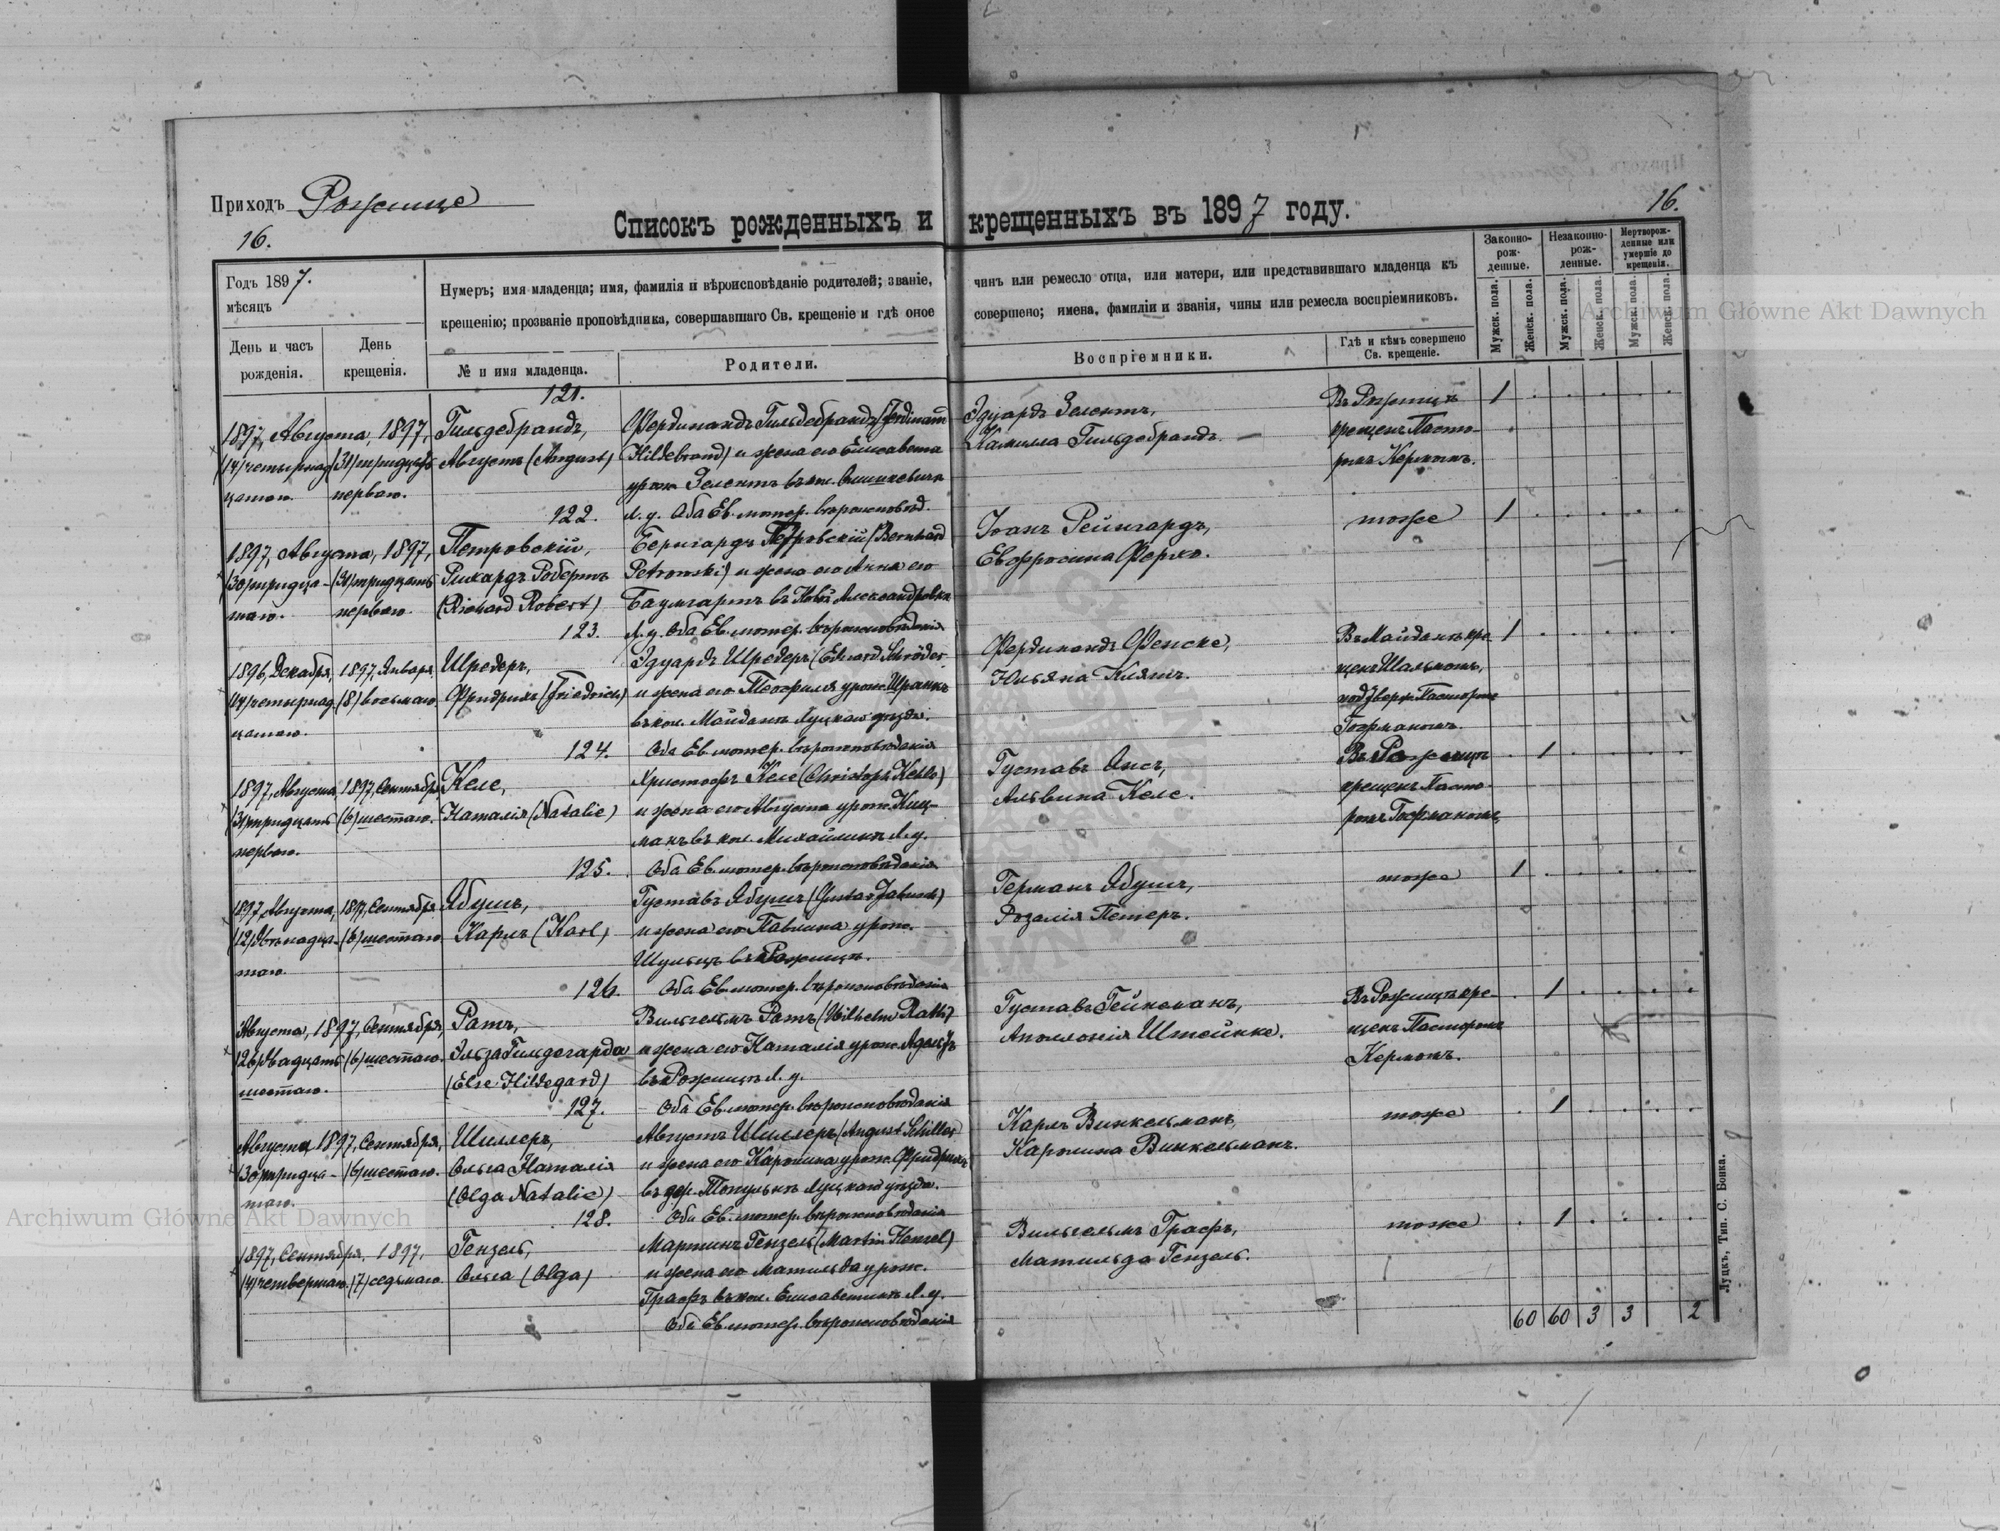 Приходъ Рожище
16.
Списокъ рожденныхъ и крещенныхъ въ 1897 году.
16.
Годъ 1897.
мѣсяцъ
День и часъ рожденія.
День крещенія.
Нумеръ; имя младенца; имя, фамилія и вѣроисповѣданіе родителей; званіе, чинъ или ремесло отца, или матери, или представившаго младенца къ
крещенію; прозваніе проповѣдника, совершавшаго Св. крещеніе и гдѣ оное совершено; имена, фамиліи и званія, чины или ремесла воспріемниковъ.
№ и имя младенца.
Родители.
Воспріемники.
Гдѣ и кѣмъ совершено Св. крещеніе.
Законно-рожденные.
Незаконно-рожденные.
Мертворожденные или умершіе до крещенія.
Мужск. пола.
Женск. пола.
Мужск. пола.
Женск. пола.
Мужск. пола.
Женск. пола.
121.
1897, Августа, 1897,
(14) четырнад-
цатаго.
(31) тридцать
перваго.
Гильдебрандъ,
Августъ (August)
Фердинандъ Гильдебрандъ (Ferdinand
Hildebrand) и жена его Елисавета
урож. Зелентъ въ кол.
Л. у. Оба Ев. лютер. вѣроисповѣд.
Эдуардъ Зелентъ,
Камилла Гильдебрандъ.
Въ Рожищѣ
крещенъ Пасто-
ромъ Керномъ.
1
122.
1897, Августа, 1897,
(30) тридца-
таго.
(31) тридцать
перваго.
Петровскій,
Рихардъ Робертъ
(Richard Robert)
Бернгардъ Петровскій (Bernhard
Petrowski) и жена его Анна его
Баумгартъ въ Новой Александровкѣ
Л. у. Оба Ев. лютер. вѣроисповѣданія
Іоанъ Рейнгардъ,
Евфросина Ферхо.
тоже
1
123.
1896, Декабря, 1897, Января,
(14) четырнад-
цатаго.
(8) восьмаго
Шредеръ,
Фридрихъ (Friedrich)
Эдуардъ Шредеръ (Eduard Schröder
и жена его Теофилія урож. Шранкъ
въ кол. Майданъ Луцкаго уѣзда.
Оба Ев. лютер. вѣроисповѣданія
Фердинандъ Фенске,
Юльяна Клятъ.
Въ Майданѣ кре-
щенъ Шальмомъ,
подтверж. Пасторомъ
Гофманомъ.
1
124.
1897, Августа, 1897, Сентября
(31) тридцать
перваго.
(6) шестаго.
Келе,
Наталія (Natalie)
Христофъ Келе (Christoph Kehle)
и жена его Августа урож. Киц-
манъ въ кол. Михайлинѣ Л. у.
Оба Ев. лютер. вѣроисповѣданія
Густавъ Янсъ,
Альвина Келе.
Въ Рожищѣ
крещенъ Пасто-
ромъ Гофманомъ,
1
125.
1897, Августа, 1897, Сентября
(12) двѣнадца-
таго
(6) шестаго
Ябушъ,
Карлъ (Karl)
Густавъ Ябушъ (Gustav Jabusch)
и жена его Павлина урож.
Шульцъ въ Рожищѣ.
Оба Ев. лютер. вѣроисповѣданія
Германъ Ябушъ,
Розалія Петеръ.
тоже
1
126.
Августа, 1897, Сентября,
(26) двадцать
шестаго.
(6) шестаго.
Ратъ,
Эльза Гильдегарда
(Else Hildegard)
Вильгельмъ Ратъ (Wilhelm Rath)
и жена его Наталія урож. Адольфъ
въ Рожищѣ Л. у.
Оба Ев. лютер. вѣроисповѣданія
Густавъ Гейнеманъ,
Аполлонія Штейнке.
Въ Рожищѣ кре-
щенъ Пасторомъ
Керномъ.
1
127.
Августа 1897, Сентября,
(30) тридца-
таго.
(6) шестаго.
Шиллеръ,
Ольга Наталія
(Olga Natalie)
Августъ Шиллеръ (August Schiller)
и жена его Каролина урож. Фридрихъ
въ дер. Топулькѣ Луцкаго уѣзда.
Оба Ев. лютер. вѣроисповѣданія
Карлъ Винкельманъ,
Каролина Винкельманъ.
тоже
1
128.
1897, Сентября, 1897,
(4) четвертаго
(7) седьмаго
Гензель,
Ольга (Olga)
Мартинъ Гензель (Martin Hensel)
и жена его Матильда урож.
Графъ въ кол. Елисаветинъ Л. у.
Оба Ев. лютер. вѣроисповѣданія
Вильгельмъ Графъ,
Матильда Гензель.
тоже
1
60 60 3 3 2
Луцкъ, Тип. С. Бонка.
Archiwum Główne Akt Dawnych
Archiwum Główne Akt Dawnych